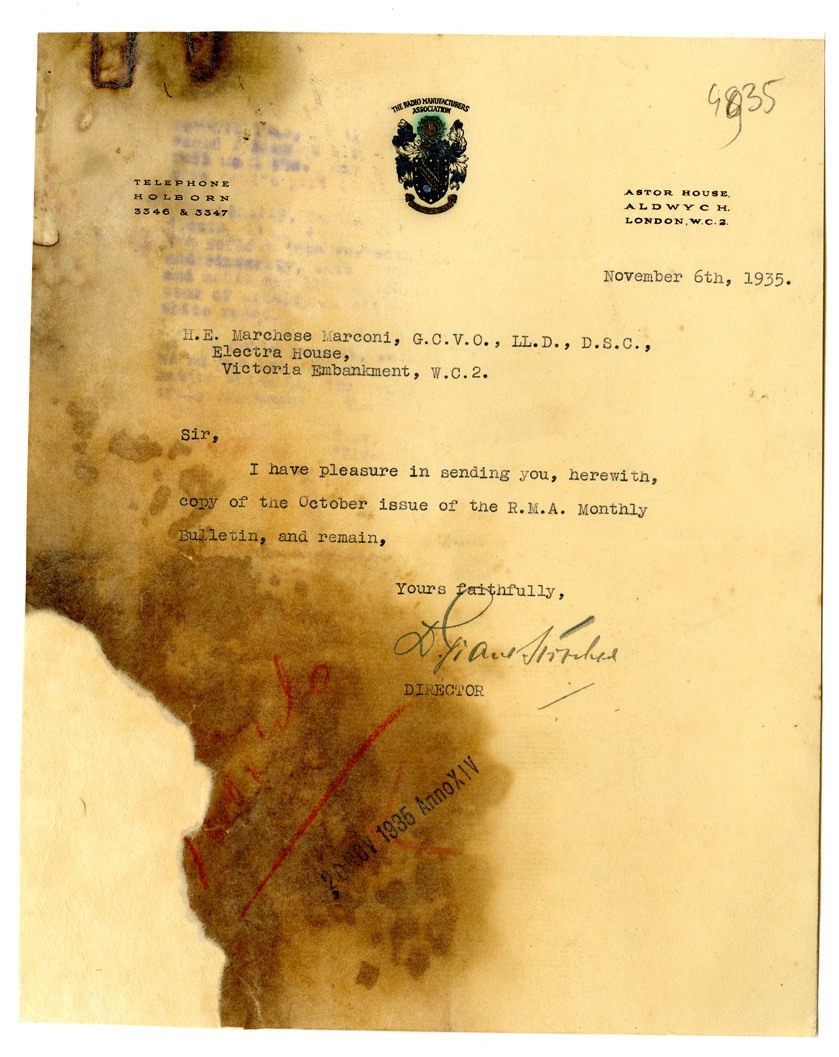 4835
THE RADIO MANUFACTURERS
ASSOCIATION
TELEPHONE
HOLBORN
3346 & 3347
ASTOR HOUSE,
ALDWYCH.
LONDON, W.C.2.
November 6th, 1935.
H.E. Marchese Marconi, G.C.V.O., LL.D., D.S.C.,
Electra House,
Victoria Embankment, W.C.2.
Sir,
I have pleasure in sending you, herewith,
copy of the October issue of the R.M.A. Monthly
Bulletin, and remain,
Yours faithfully,
DIRECTOR
20 NOV 1935 AnnoXIV